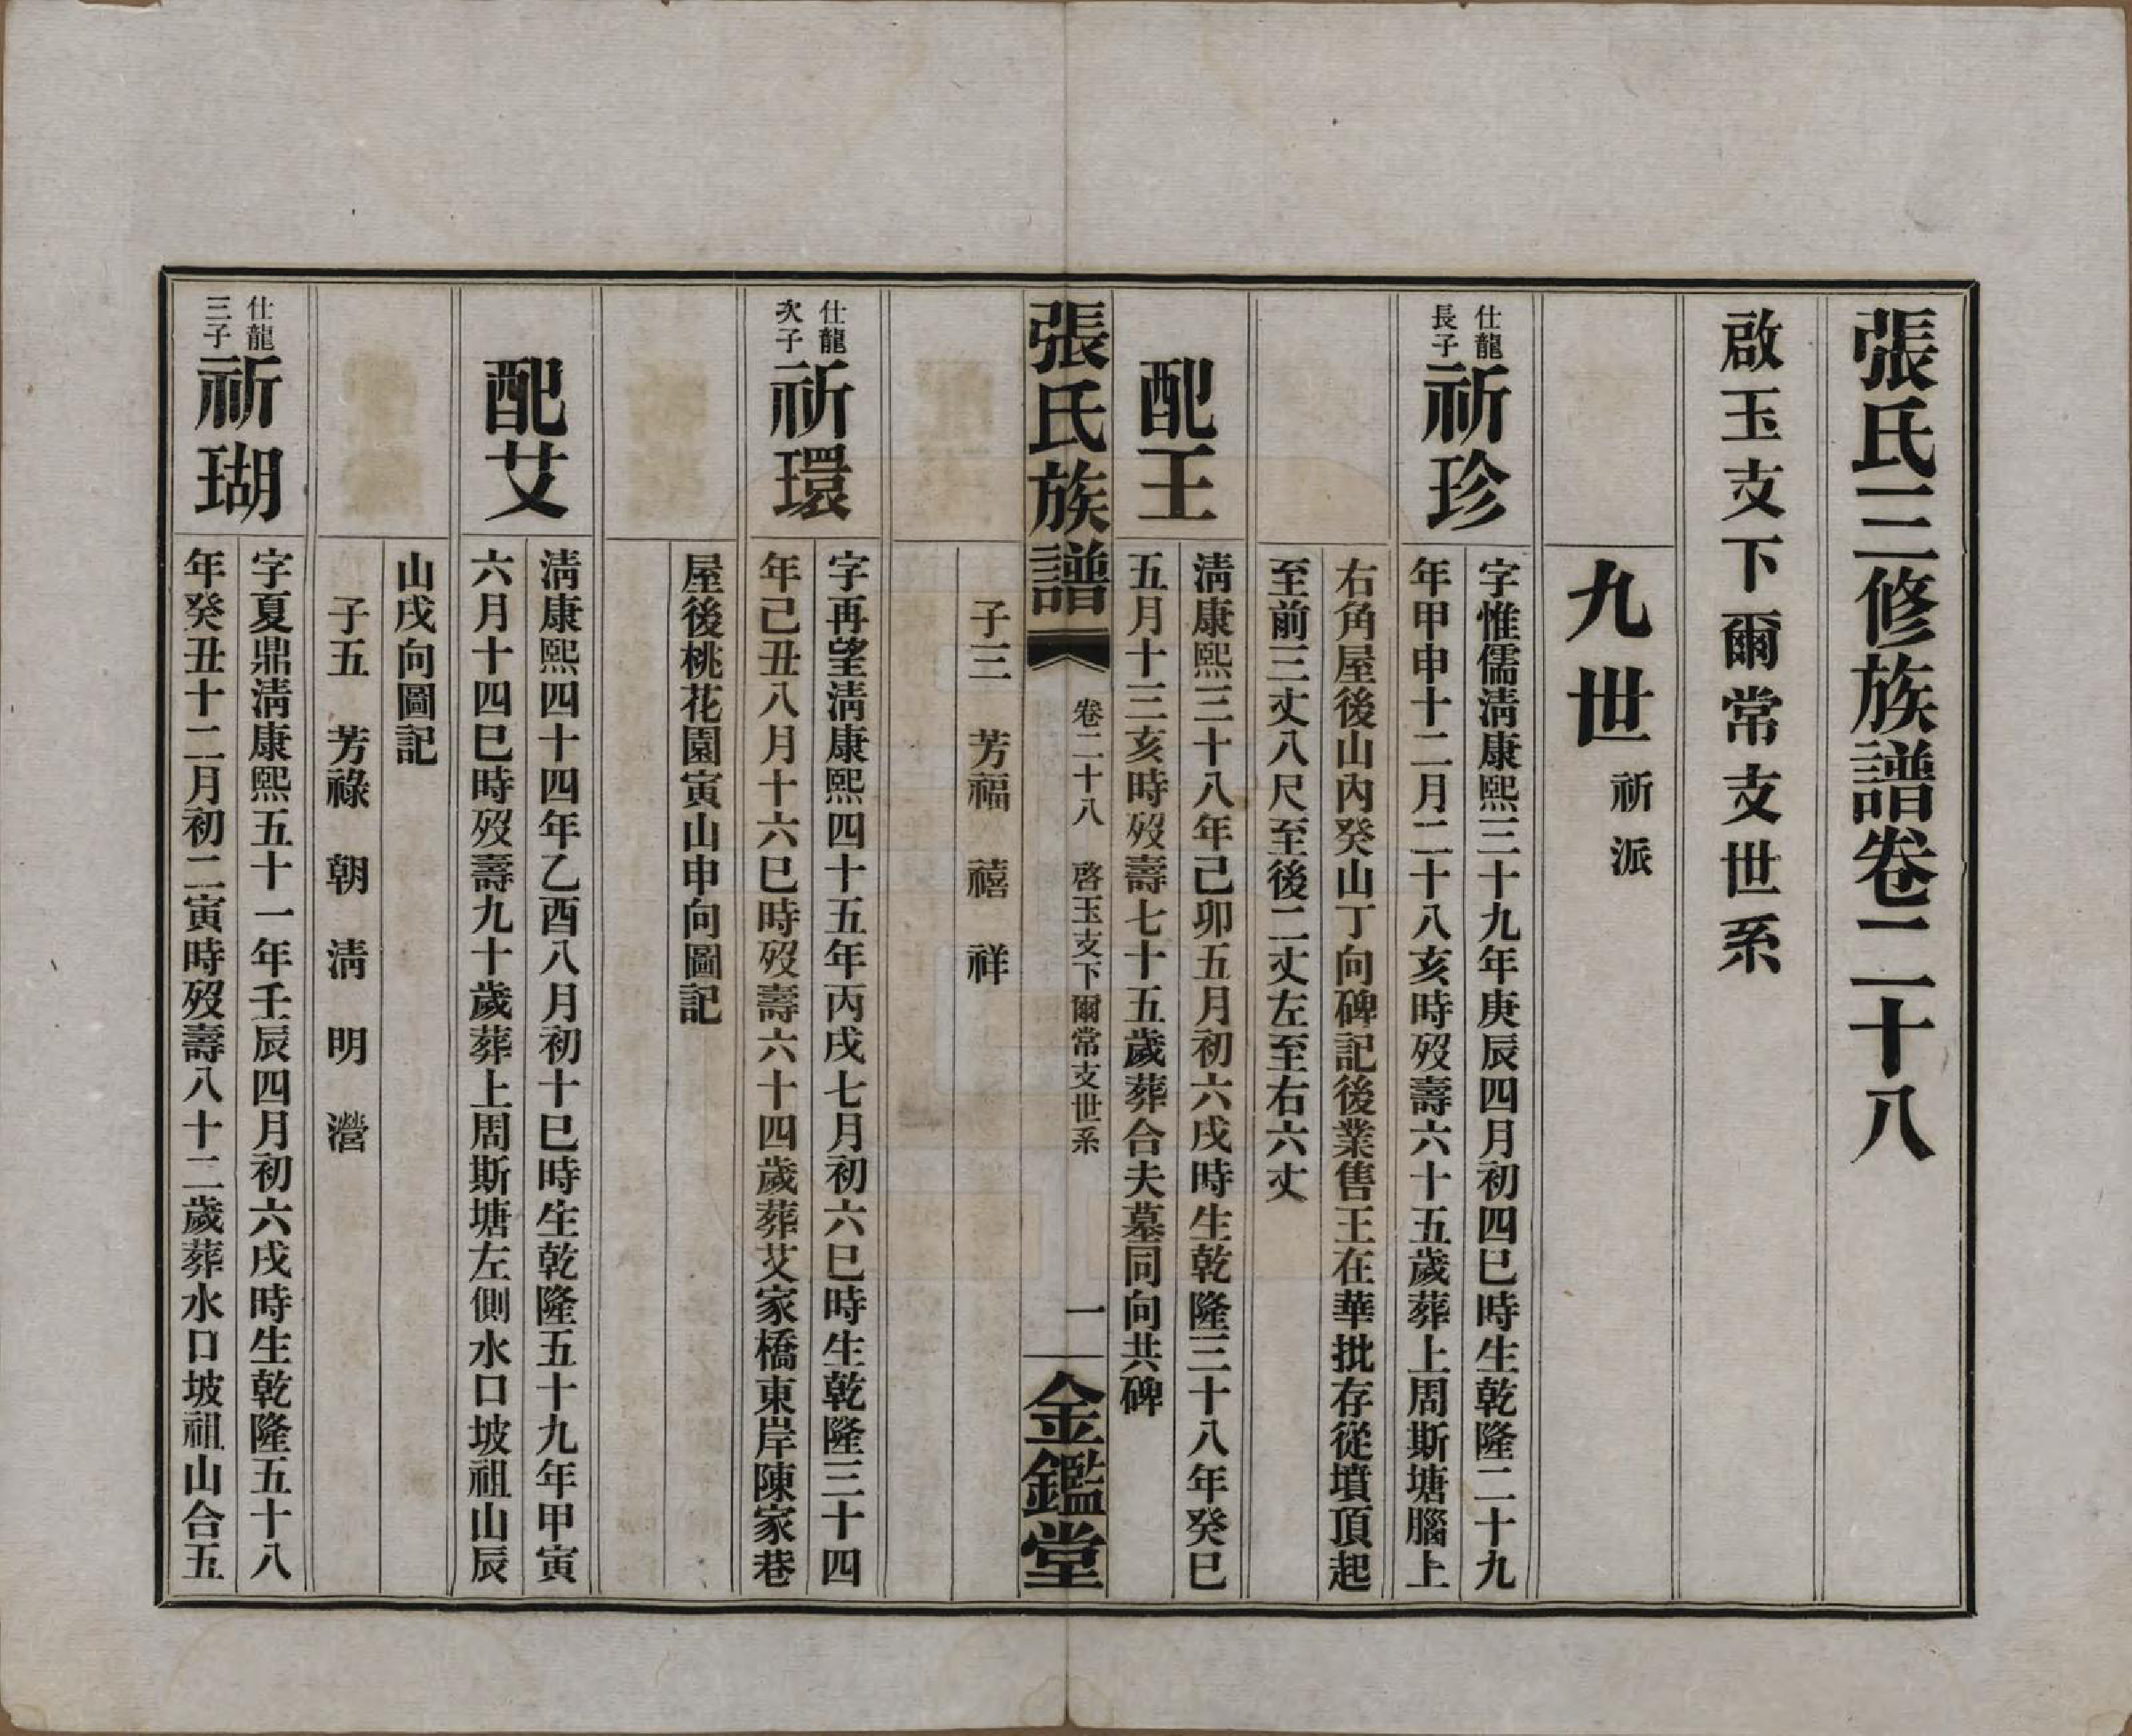 張氏三修族譜卷二十八
啟玉支下爾常支世系
九世 祈派
仕龍長子 祈珍
字惟儒清康熙三十九年庚辰四月初四巳時生乾隆二十九
年甲申十二月二十八亥時歿壽六十五歲葬上周斯塘腦上
右角屋後山內癸山丁向碑記後業售王在華批存從墳頂起
至前三丈八尺至後二丈左至右六丈
配王
清康熙三十八年己卯五月初六戌時生乾隆三十八年癸巳
五月十三亥時歿壽七十五歲葬合夫墓同向共碑
張氏族譜 卷二十八 啓玉支下爾常支世系 一 金鑑堂
子三 芳福 禧 祥
仕龍次子 祈環
字再望清康熙四十五年丙戌七月初六巳時生乾隆三十四
年己丑八月十六巳時歿壽六十四歲葬艾家橋東岸陳家巷
屋後桃花園寅山申向圖記
配艾
清康熙四十四年乙酉八月初十巳時生乾隆五十九年甲寅
六月十四巳時歿壽九十歲葬上周斯塘左側水口坡祖山辰
山戌向圖記
子五 芳祿 朝 清 明 瀯
仕龍三子 祈瑚
字夏鼎清康熙五十一年壬辰四月初六戌時生乾隆五十八
年癸丑十二月初二寅時歿壽八十二歲葬水口坡祖山合五